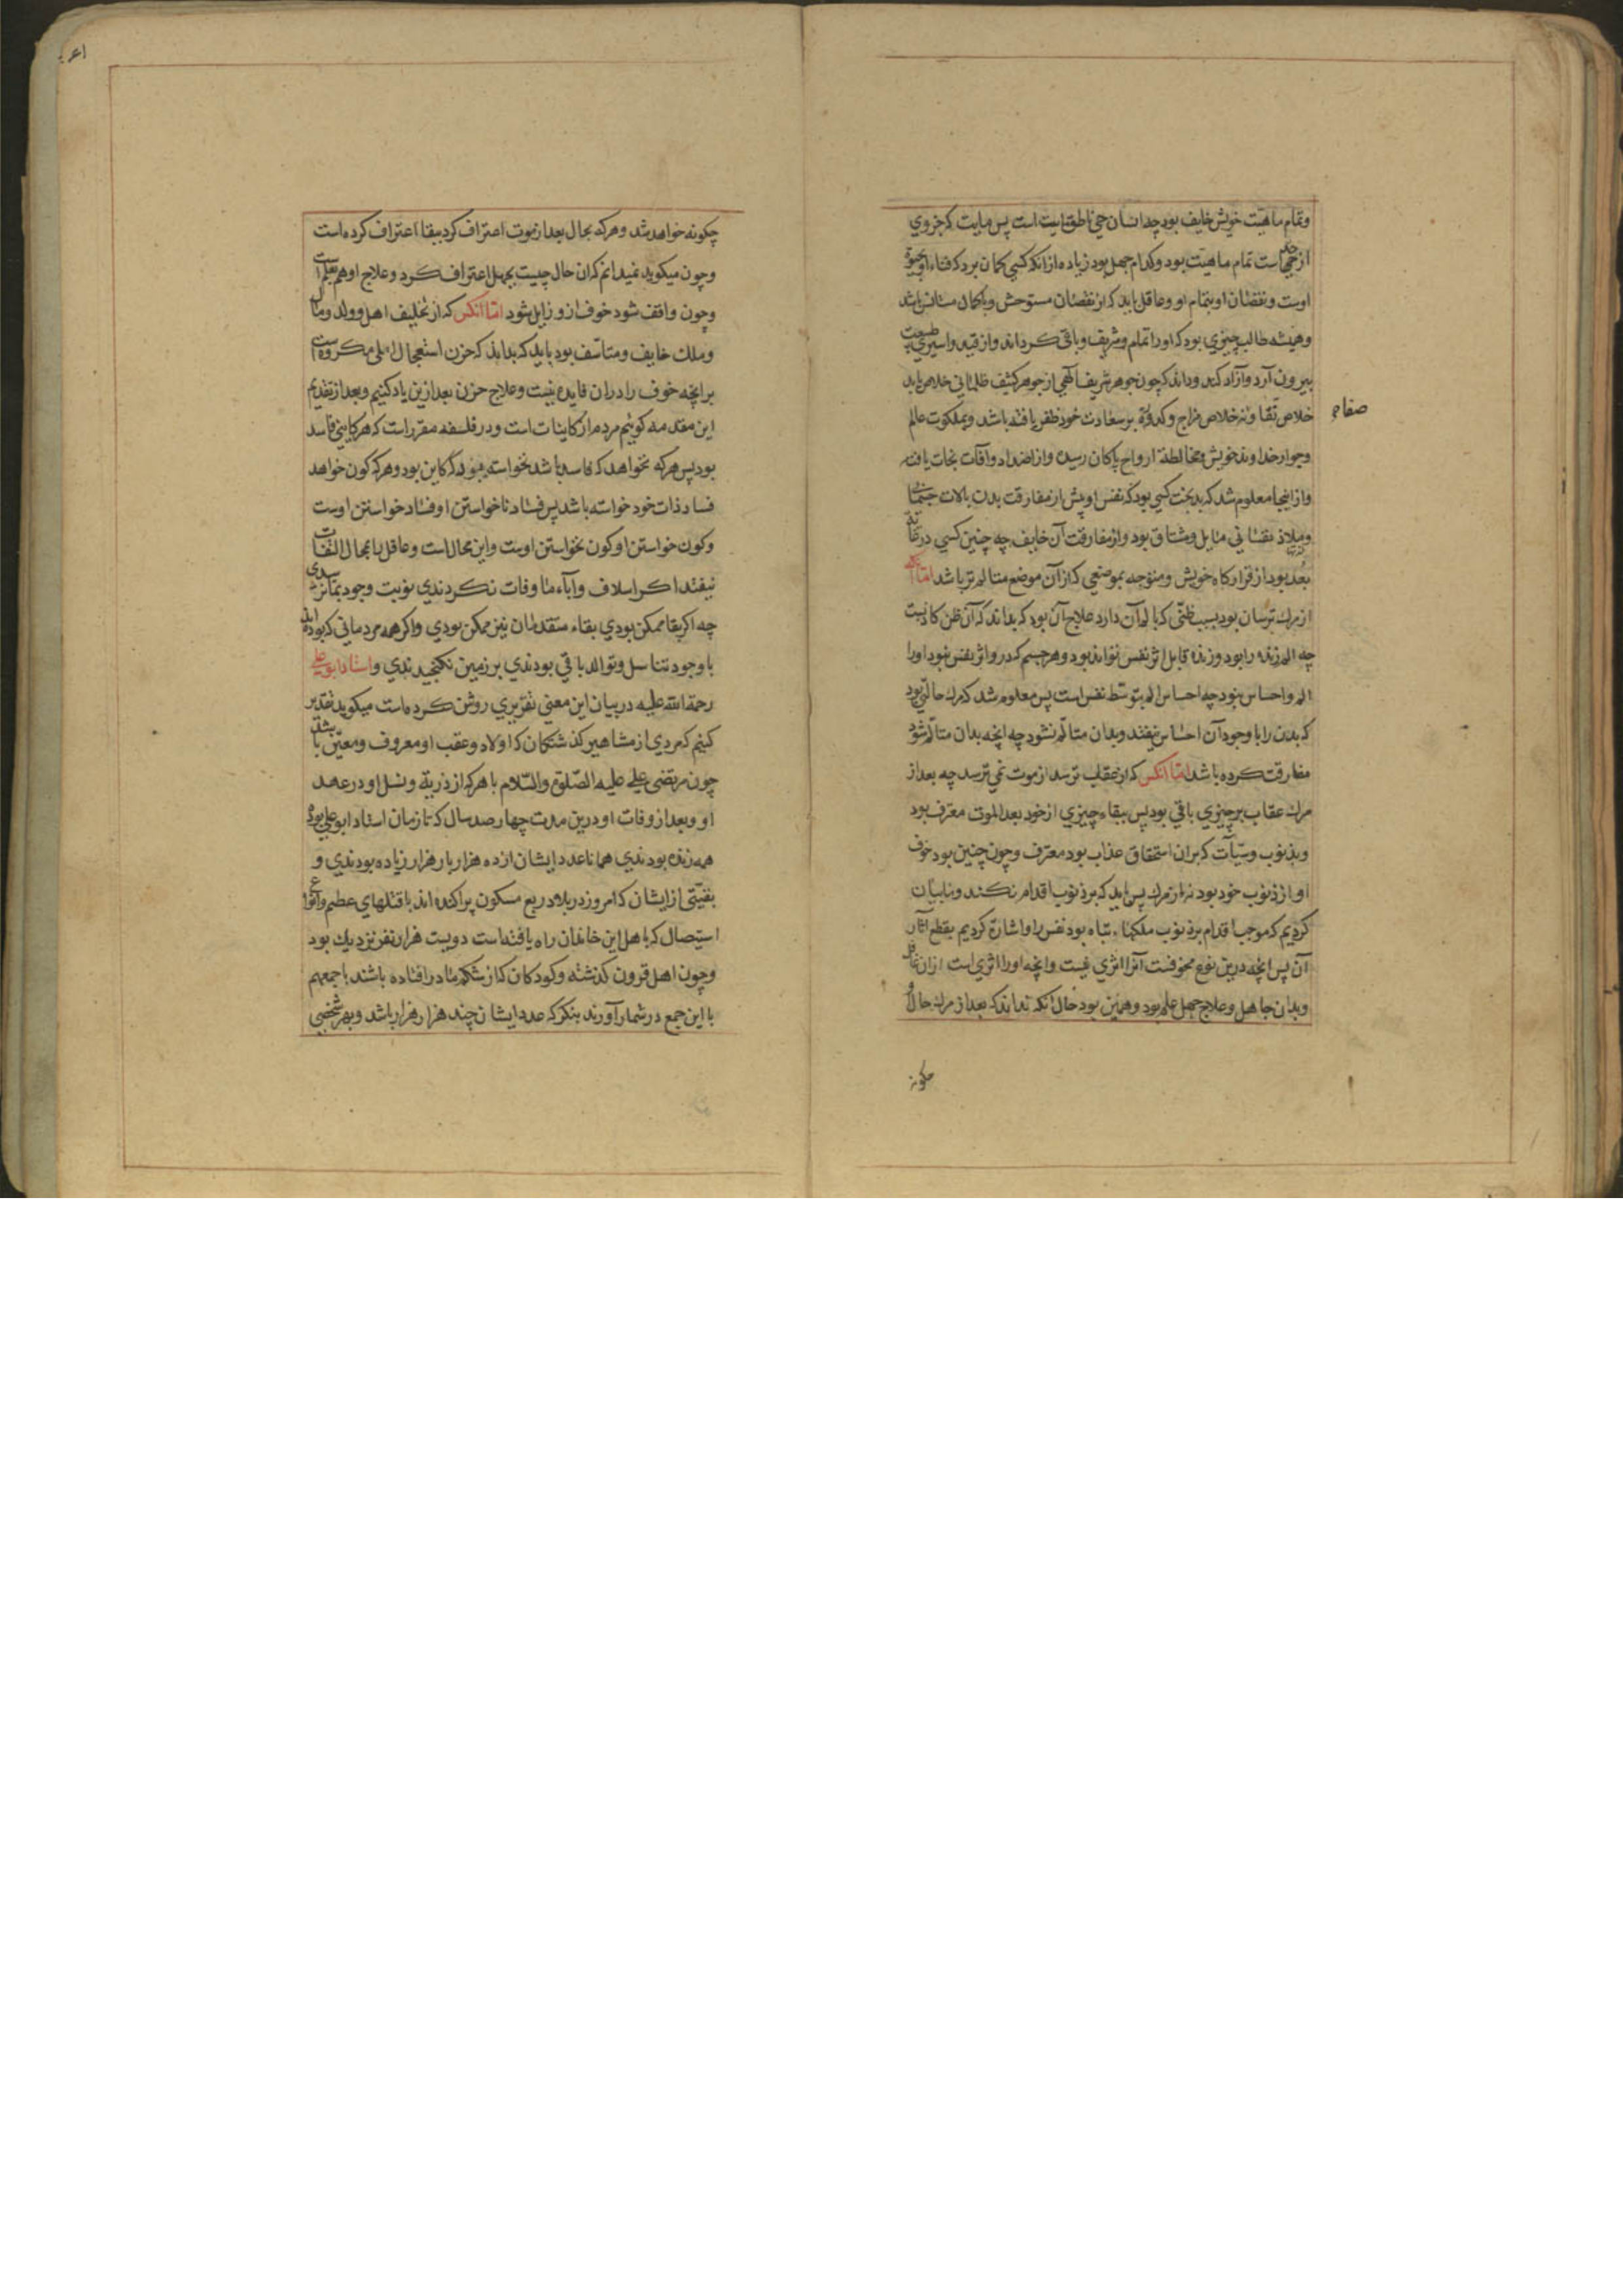 وتمام ماهیت خویش خایف بود چه انسان حی ناطق مایت است پس مایت که جزوی
از حد است تمام ماهیت بود وکدام جهل بود زیاده از انکه کسی کمان برد که فناء او بحیوة
اوست ونقصان او بتمام او وعاقل باید که از نقصان مستوحش وباکمال مستانس باشد
وهمیشه طالب چیزی بود که اورا تمام وشریف وباقی کرداند واز قید واسیری طبیعت
بیرون آرد وآزاد کند وداند که چون جوهر شریف الهی از جوهر کثیف ظلمانی خلاص یابد
خلاص نقا ونه خلاص مزاج وکدورة بر سعادت خود ظفر یافته باشد وبملکوت عالم
صفا
وجوار خداوند خویش ومخالطة ارواح پاکان رسیده واز اضداد وآفات نجات یافته
واز اینجا معلوم شد که بدبخت کسی بود که نفس او پیش از مفارقت بدن بالات جسمانی
وملاذ نفسانی مایل ومشتاق بود واز مفارقت آن خایف چه چنین کسی در غایة
بعد بود از قرارکاه خویش ومتوجه بموضعی که از آن موضع متالم تر باشد اما آنکه
از مرك ترسان بود بسبب ظنی که بالم آن دارد علاج آن بود که بداند که آن ظن کاذبست
چه الم زنده را بود وزنده قابل اثر نفس تواند بود وهر جسم که درو اثر نفس نبود اورا
الم واحساس نبود چه احساس الم بتوسط نفس است پس معلوم شد که مرك حالتی بود
که بدن را با وجود آن احساس نیفتد وبدان متالم نشود چه انچه بدان متالم شود
مفارقت کرده باشد اما انکس که از عقاب ترسد از موت نمی ترسد چه بعد از
مرك عقاب بر چیزی باقی بود پس ببقاء چیزی از خود بعد الموت معترف بود
وبذنوب وسیآت که بران استحقاق عذاب بود معترف وچون چنین بود خوف
او از ذنوب خود بود نه از مرك پس باید که بر ذنوب اقدام نکند وما بیان
کردیم که موجب اقدام بر ذنوب ملکهاء تباه بود نفس را واشارة کردیم بقطع آثار
آن پس انچه درین نوع مخوفست آنرا اثری نیست وانچه اورا اثری است ازان غافل
وبدان جاهل وعلاج جهل علم بود وهمین بود حال انکه نداند که بعد از مرك حال او
چکونه
چکونه خواهد شد وهرکه بحال بعد از موت اعتراف کرد ببقا اعتراف کرده است
وچون میکوید نمیدانم که ان حال چیست بجهل اعتراف کرد وعلاج او هم بعلم است
وچون واقف شود خوف ازو زایل شود اما انکس که از تخلیف اهل وولد ومال
وملك خایف ومتاسف بود باید که بداند که حزن استعجال المی ومکروهی است
بر انچه خوف را دران فایده نیست وعلاج حزن بعد ازین یاد کنیم وبعد از تقدیم
این مقدمه کوییم مردم از کاینات است ودر فلسفه مقرر است که هر کاینی فاسد
بود پس هرکه نخواهد که فاسد باشد نخواسته بود که کاین بود وهرکه کون خواهد
فساد ذات خود خواسته باشد پس فساد ناخواستن او فساد خواستن اوست
وکون خواستن او کون نخواستن اوست واین محال است وعاقل را بمحال التفات
نیفتد اکر اسلاف وآباء ما وفات نکردندی نوبت وجود بما نرسیدی
چه اکر بقا ممکن بودی بقاء متقدمان نیز ممکن بودی واکر همه مردمانی که بوده اند
با وجود تناسل وتوالد باقی بودندی بر زمین نکنجیدندی واستاد ابو علی
رحمة الله علیه در بیان این معنی تقریری روشن کرده است میکوید تقدیر
کنیم که مردی از مشاهیر کذشتکان که اولاد وعقب او معروف ومعین باشند
چون مرتضی علی علیه الصلوة والسلام با هرکه از ذریة ونسل او در عهد
او وبعد از وفات او درین مدت چهار صد سال که تا زمان استاد ابو علی بود
همه زنده بودندی همانا عدد ایشان از ده هزار بار هزار زیاده بودندی و
بقیتی از ایشان که امروز در بلاد ربع مسکون پراکنده اند با قتلهای عظیم وانواع
استیصال که باهل این خاندان راه یافته است دویست هزار نفر نزدیك بود
وچون اهل قرون کذشته وکودکان که از شکم مادر افتاده باشند باجمعهم
با این جمع در شمار آورند بنکر که عدد ایشان چند هزار هزار باشد وبهر شخصی